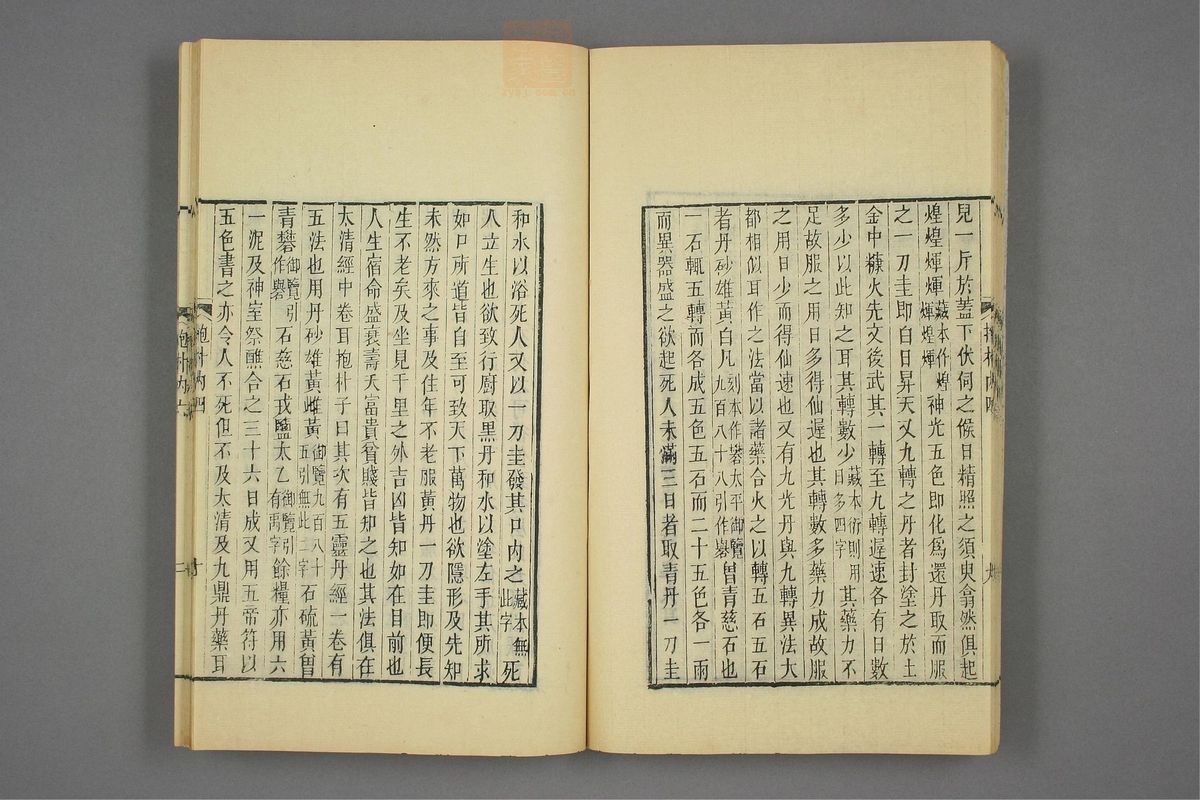 兒一斤於蓋下伏伺之候日精照之須臾翕然俱起
煌煌煇煇藏本作煌煇煌煇神光五色即化爲還丹取而服
之一刀圭即白日昇天又九轉之丹者封塗之於土
金中糠火先文後武其一轉至九轉遲速各有日數
多少以此知之耳其轉數少藏本衍則用日多四字其藥力不
足故服之用日多得仙遲也其轉數多藥力成故服
之用日少而得仙速也又有九光丹與九轉異法大
都相似耳作之法當以諸藥合火之以轉五石五石
者丹砂雄黃白凡刻本作礬太平御覽九百八十八引作礜曽青慈石也
一石輒五轉而各成五色五石而二十五色各一兩
而異器盛之欲起死人未滿三日者取青丹一刀圭
和水以浴死人又以一刀圭發其口內之藏本無此字死
人立生也欲致行廚取黑丹和水以塗左手其所求
如口所道皆自至可致天下萬物也欲隱形及先知
未然方來之事及住年不老服黃丹一刀圭即便長
生不老矣及坐見千里之外吉凶皆知如在目前也
人生宿命盛衰壽夭富貴貧賤皆知之也其法俱在
太清經中卷耳抱朴子曰其次有五靈丹經一卷有
五法也用丹砂雄黃雌黃御覽九百八十五引無此二字石硫黃曽
青礬御覽引作礜石慈石戎鹽太乙御覽引有禹字餘糧亦用六
一泥及神室祭醮合之三十六日成又用五帝符以
五色書之亦令人不死但不及太清及九鼎丹藥耳
抱朴內四
十